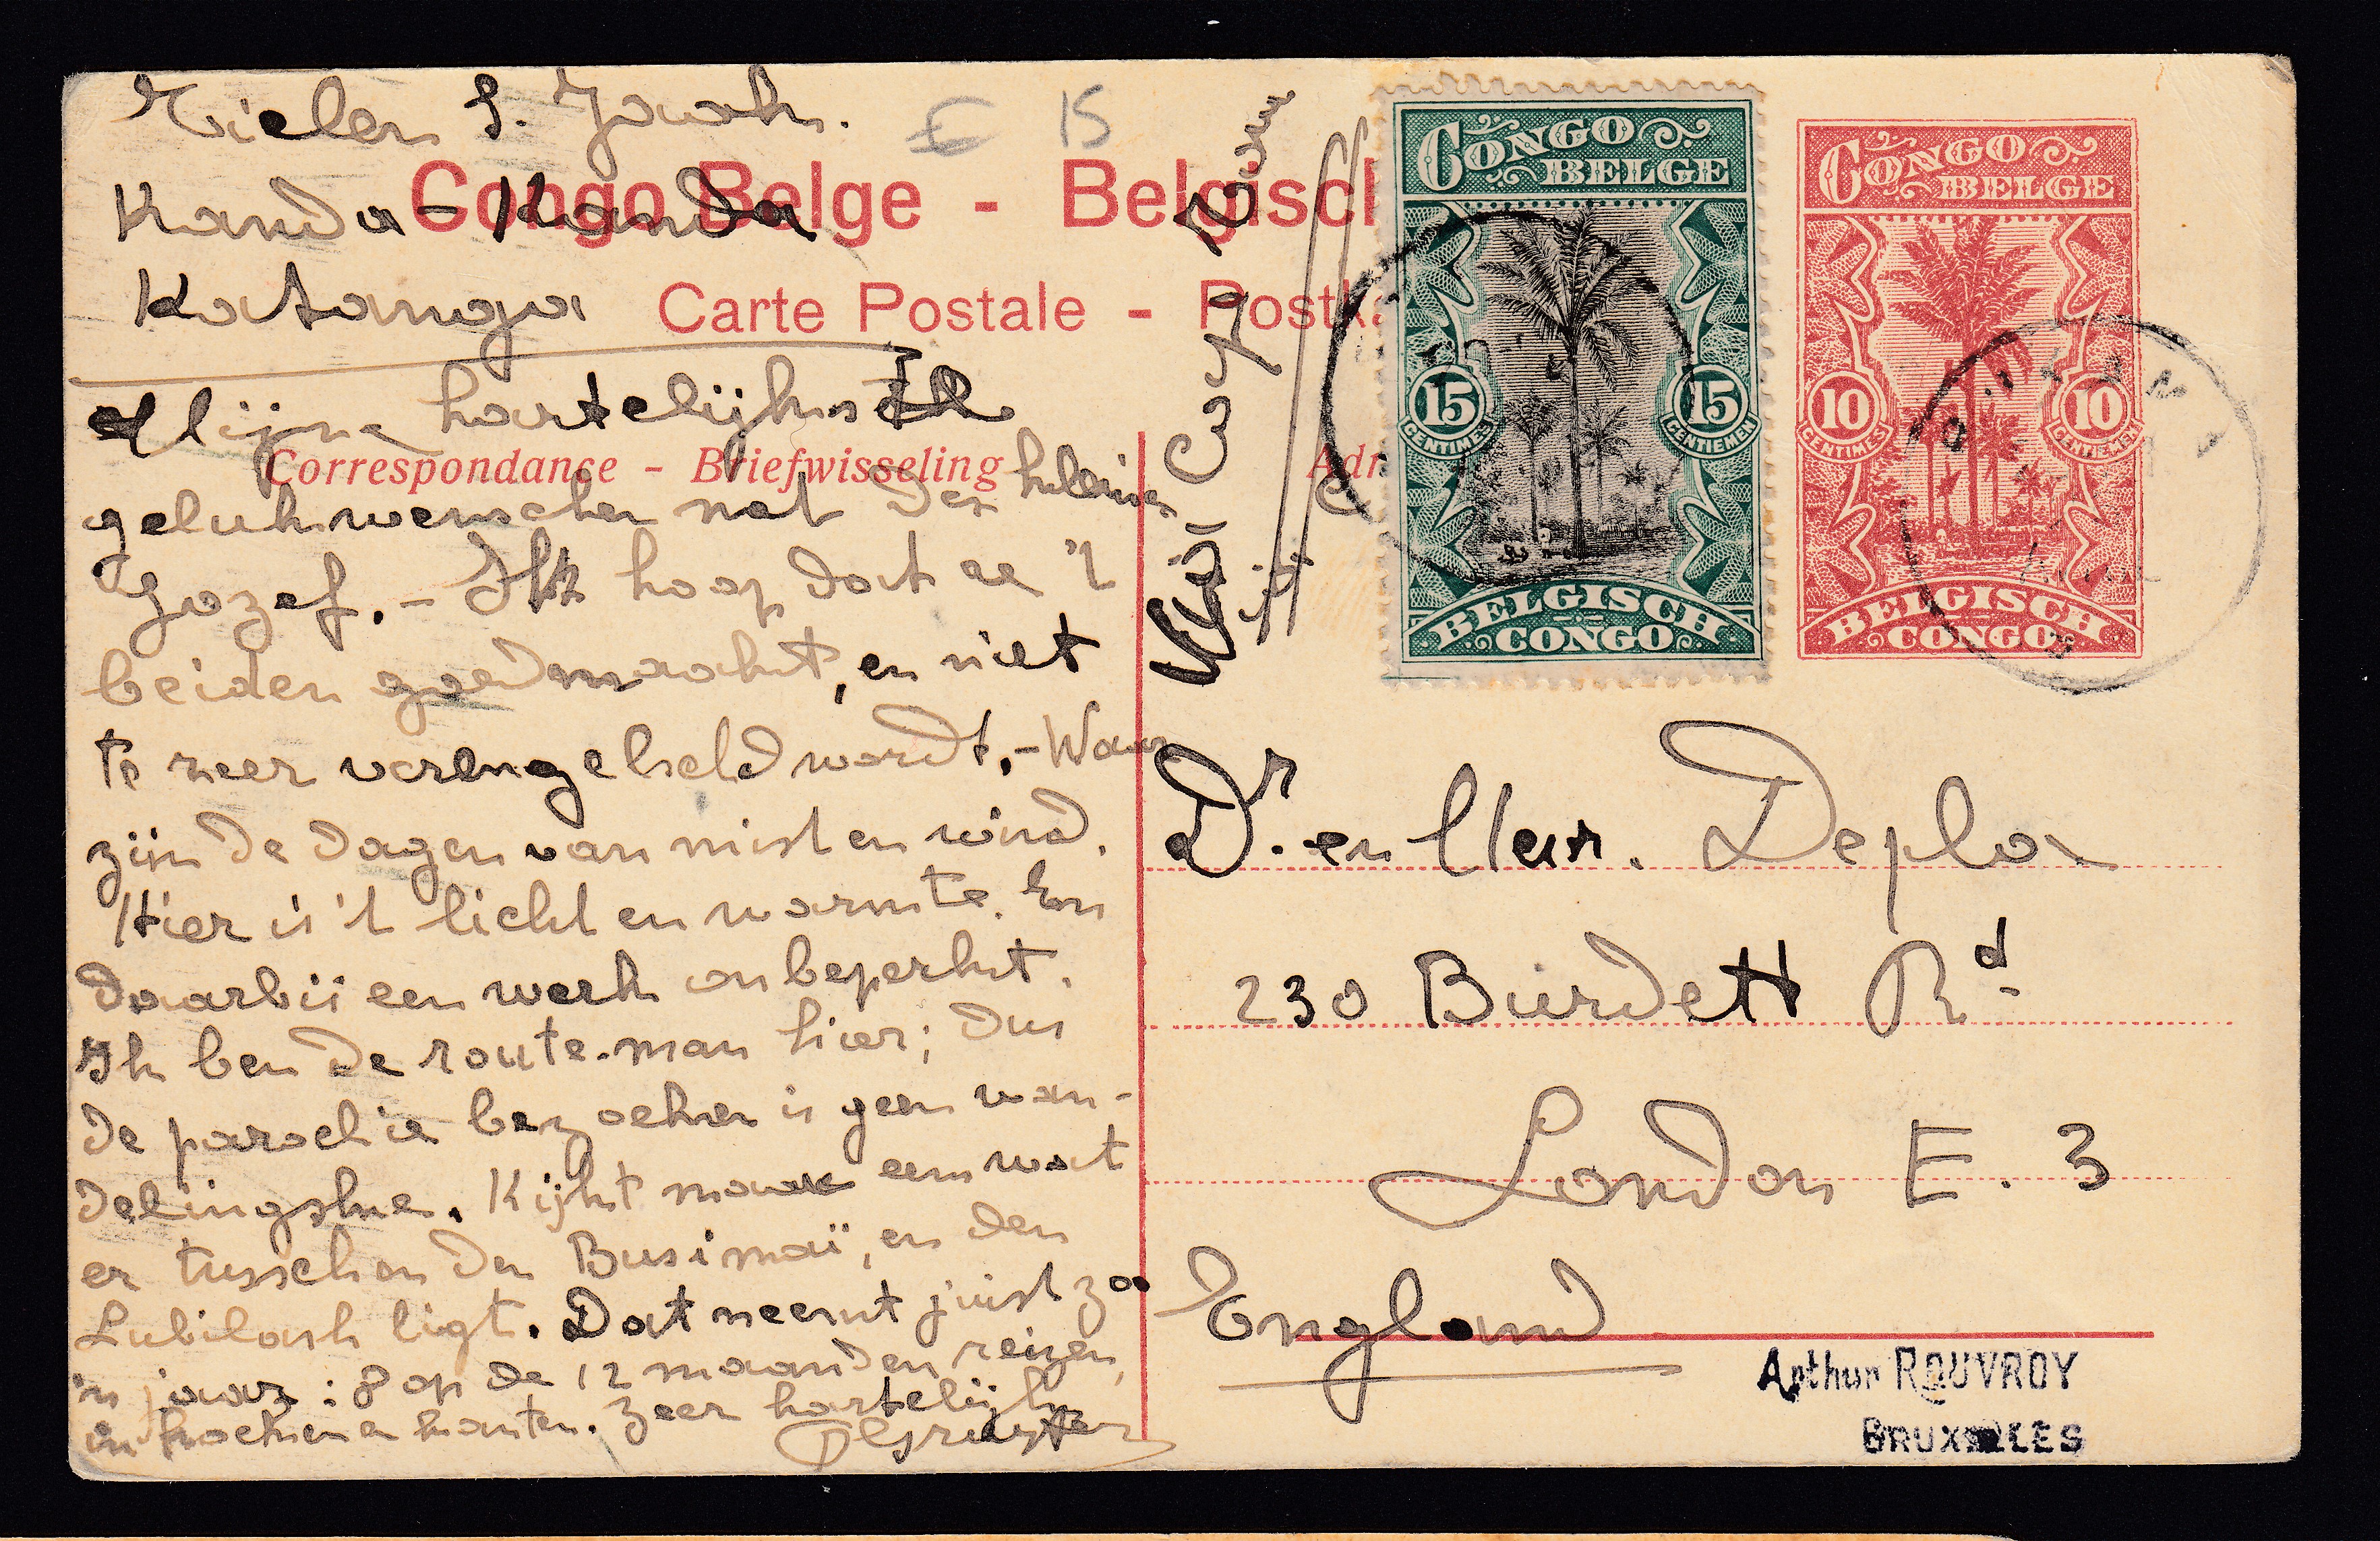 Tielen S. Jacob.
Kanda-Kanda
Katanga
€ 15
Congo Belge - Belgisch
Carte Postale - Postka
Correspondance - Briefwisseling
Adr
Mijne hartelijkste
gelukwenschen met den kleinen
Jozef. - Ik hoop dat ge 't
beiden goed maakt, en niet
te zeer verengelscht wordt. - Waar
zijn de dagen van mist en wind.
Hier is 't licht en warmte. En
daarbij een werk onbeperkt.
Ik ben de route-man hier; dus
de parochie bezoeken is geen wan-
delingske. Kijkt maar eens wat
er tusschen den Busimaï, en den
Lubilash ligt. Dat neemt juist zoo
'n jaar : 8 op de 12 maanden reizen
in hoeken en kanten. Zeer hartelijk
Via Cape Town
CONGO
BELGE
15 15
CENTIMES CENTIEMEN
BELGISCH
CONGO
CONGO
BELGE
10 10
CENTIMES CENTIEMEN
BELGISCH
CONGO
Dr. en Mevr. Depla
230 Burdett Rd
London E. 3
England
Arthur ROUVROY
BRUXELLES